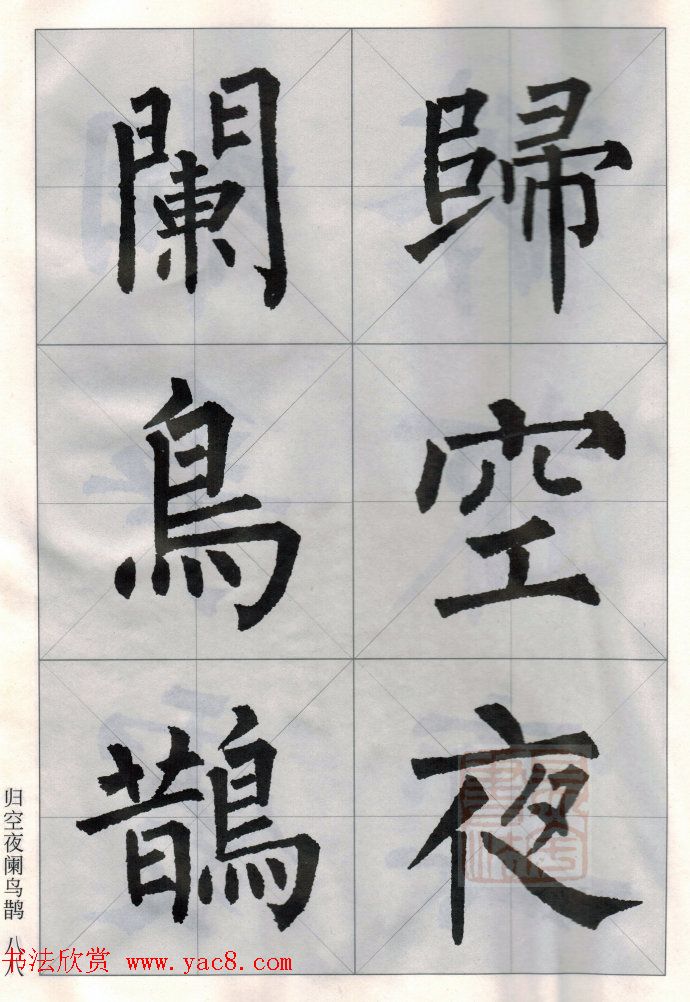 歸空夜
闌鳥鵲
归空夜阑鸟鹊 八八
书法欣赏 www.yac8.com